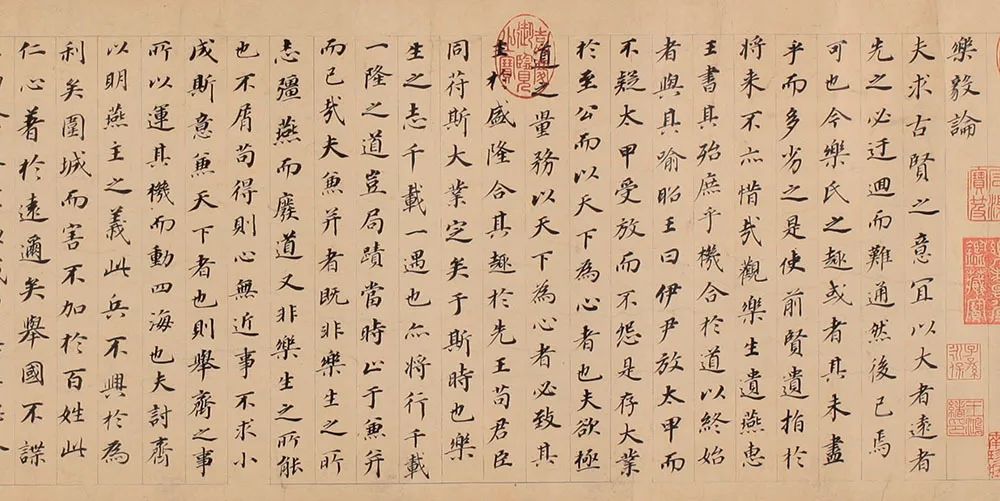 樂毅論
夫求古賢之意宜以大者遠者
先之必迂迴而難通然後已焉
可也今樂氏之趣或者其未盡
乎而多劣之是使前賢遺指於
將来不亦惜哉觀樂生遺燕惠
王書其殆庶乎機合於道以終始
者與其喻昭王曰伊尹放太甲而
不疑太甲受放而不怨是存大業
於至公而以天下為心者也夫欲極
道之量務以天下為心者必致其
主於盛隆合其趣於先王苟君臣
同苻斯大業定矣于斯時也樂
生之志千載一遇也亦將行千載
一隆之道豈局蹟當時止于兼并
而已哉夫兼并者既非樂生之所
志彊燕而廢道又非樂生之所能
也不屑苟得則心無近事不求小
成斯意兼天下者也則舉齊之事
所以運其機而動四海也夫討齊
以明燕主之義此兵不興於為
利矣圍城而害不加於百姓此
仁心著於遠邇矣舉國不謀